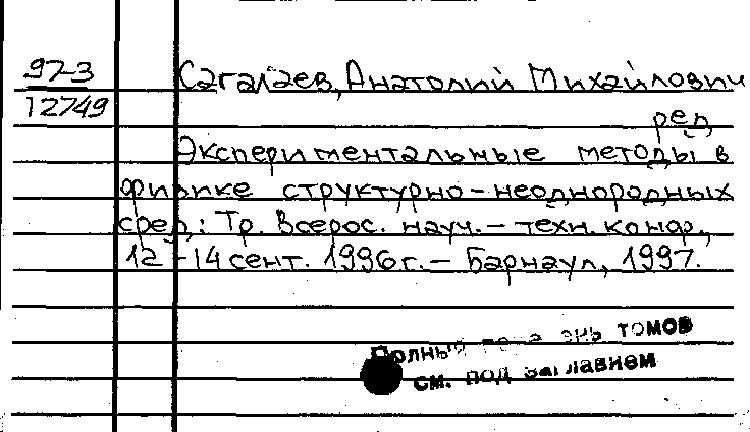 97-3
12749
Сагалаев, Анатолий Михайлович
ред.
Экспериментальные методы в
физике структурно-неоднородных
сред.: Тр. Всерос. науч. - техн. конф.,
12-14 сент. 1996 г. - Барнаул, 1997.
Полный томов
см. под заглавием